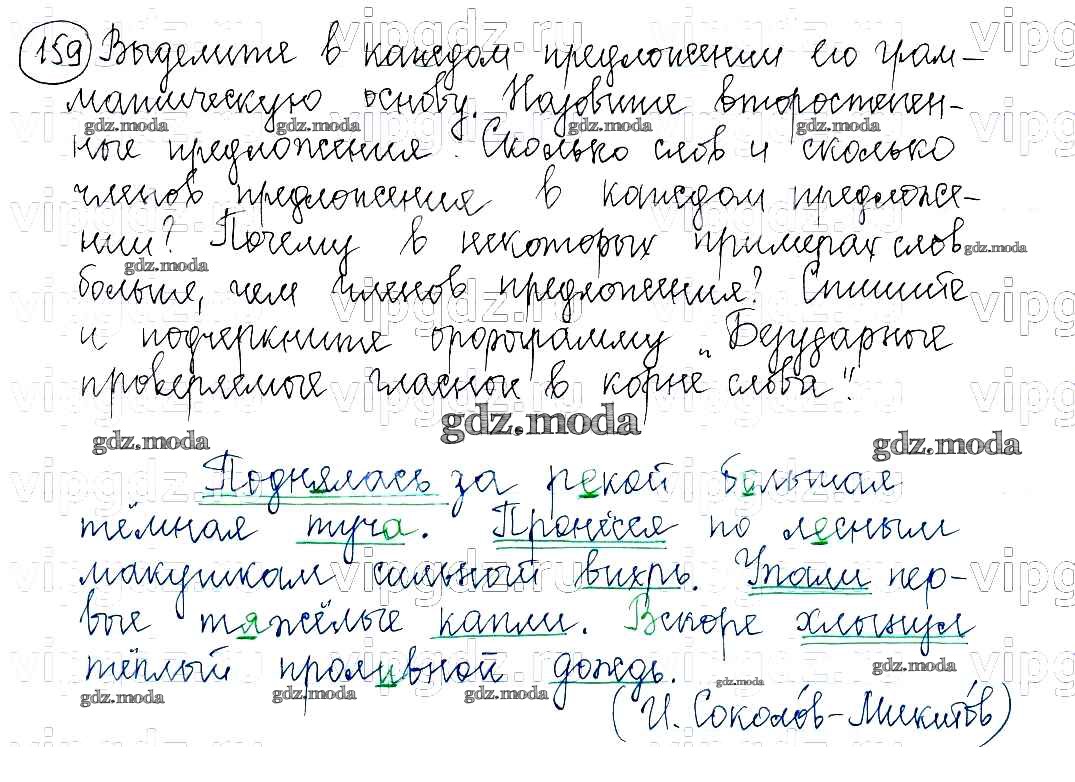 159 Выделите в каждом предложении его грам-
матическую основу. Назовите второстепен-
ные предложения. Сколько слов и сколько
членов предложения в каждом предложе-
нии? Почему в некоторых примерах слов
больше, чем членов предложения? Спишите
и подчеркните орфограмму „Безударные
проверяемые гласные в корне слова".
gdz.moda
Поднялась за рекой большая
тёмная туча. Пронёсся по лесным
макушкам сильный вихрь. Упали пер-
вые тяжёлые капли. Вскоре хлынул
тёплый проливной дождь.
(И. Соколов-Микитов)